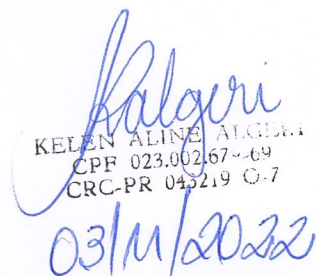 Kalgeri
KELEN ALINE
CPF 023.002.67
CRC-PR 043219 O-7
03/11/2022